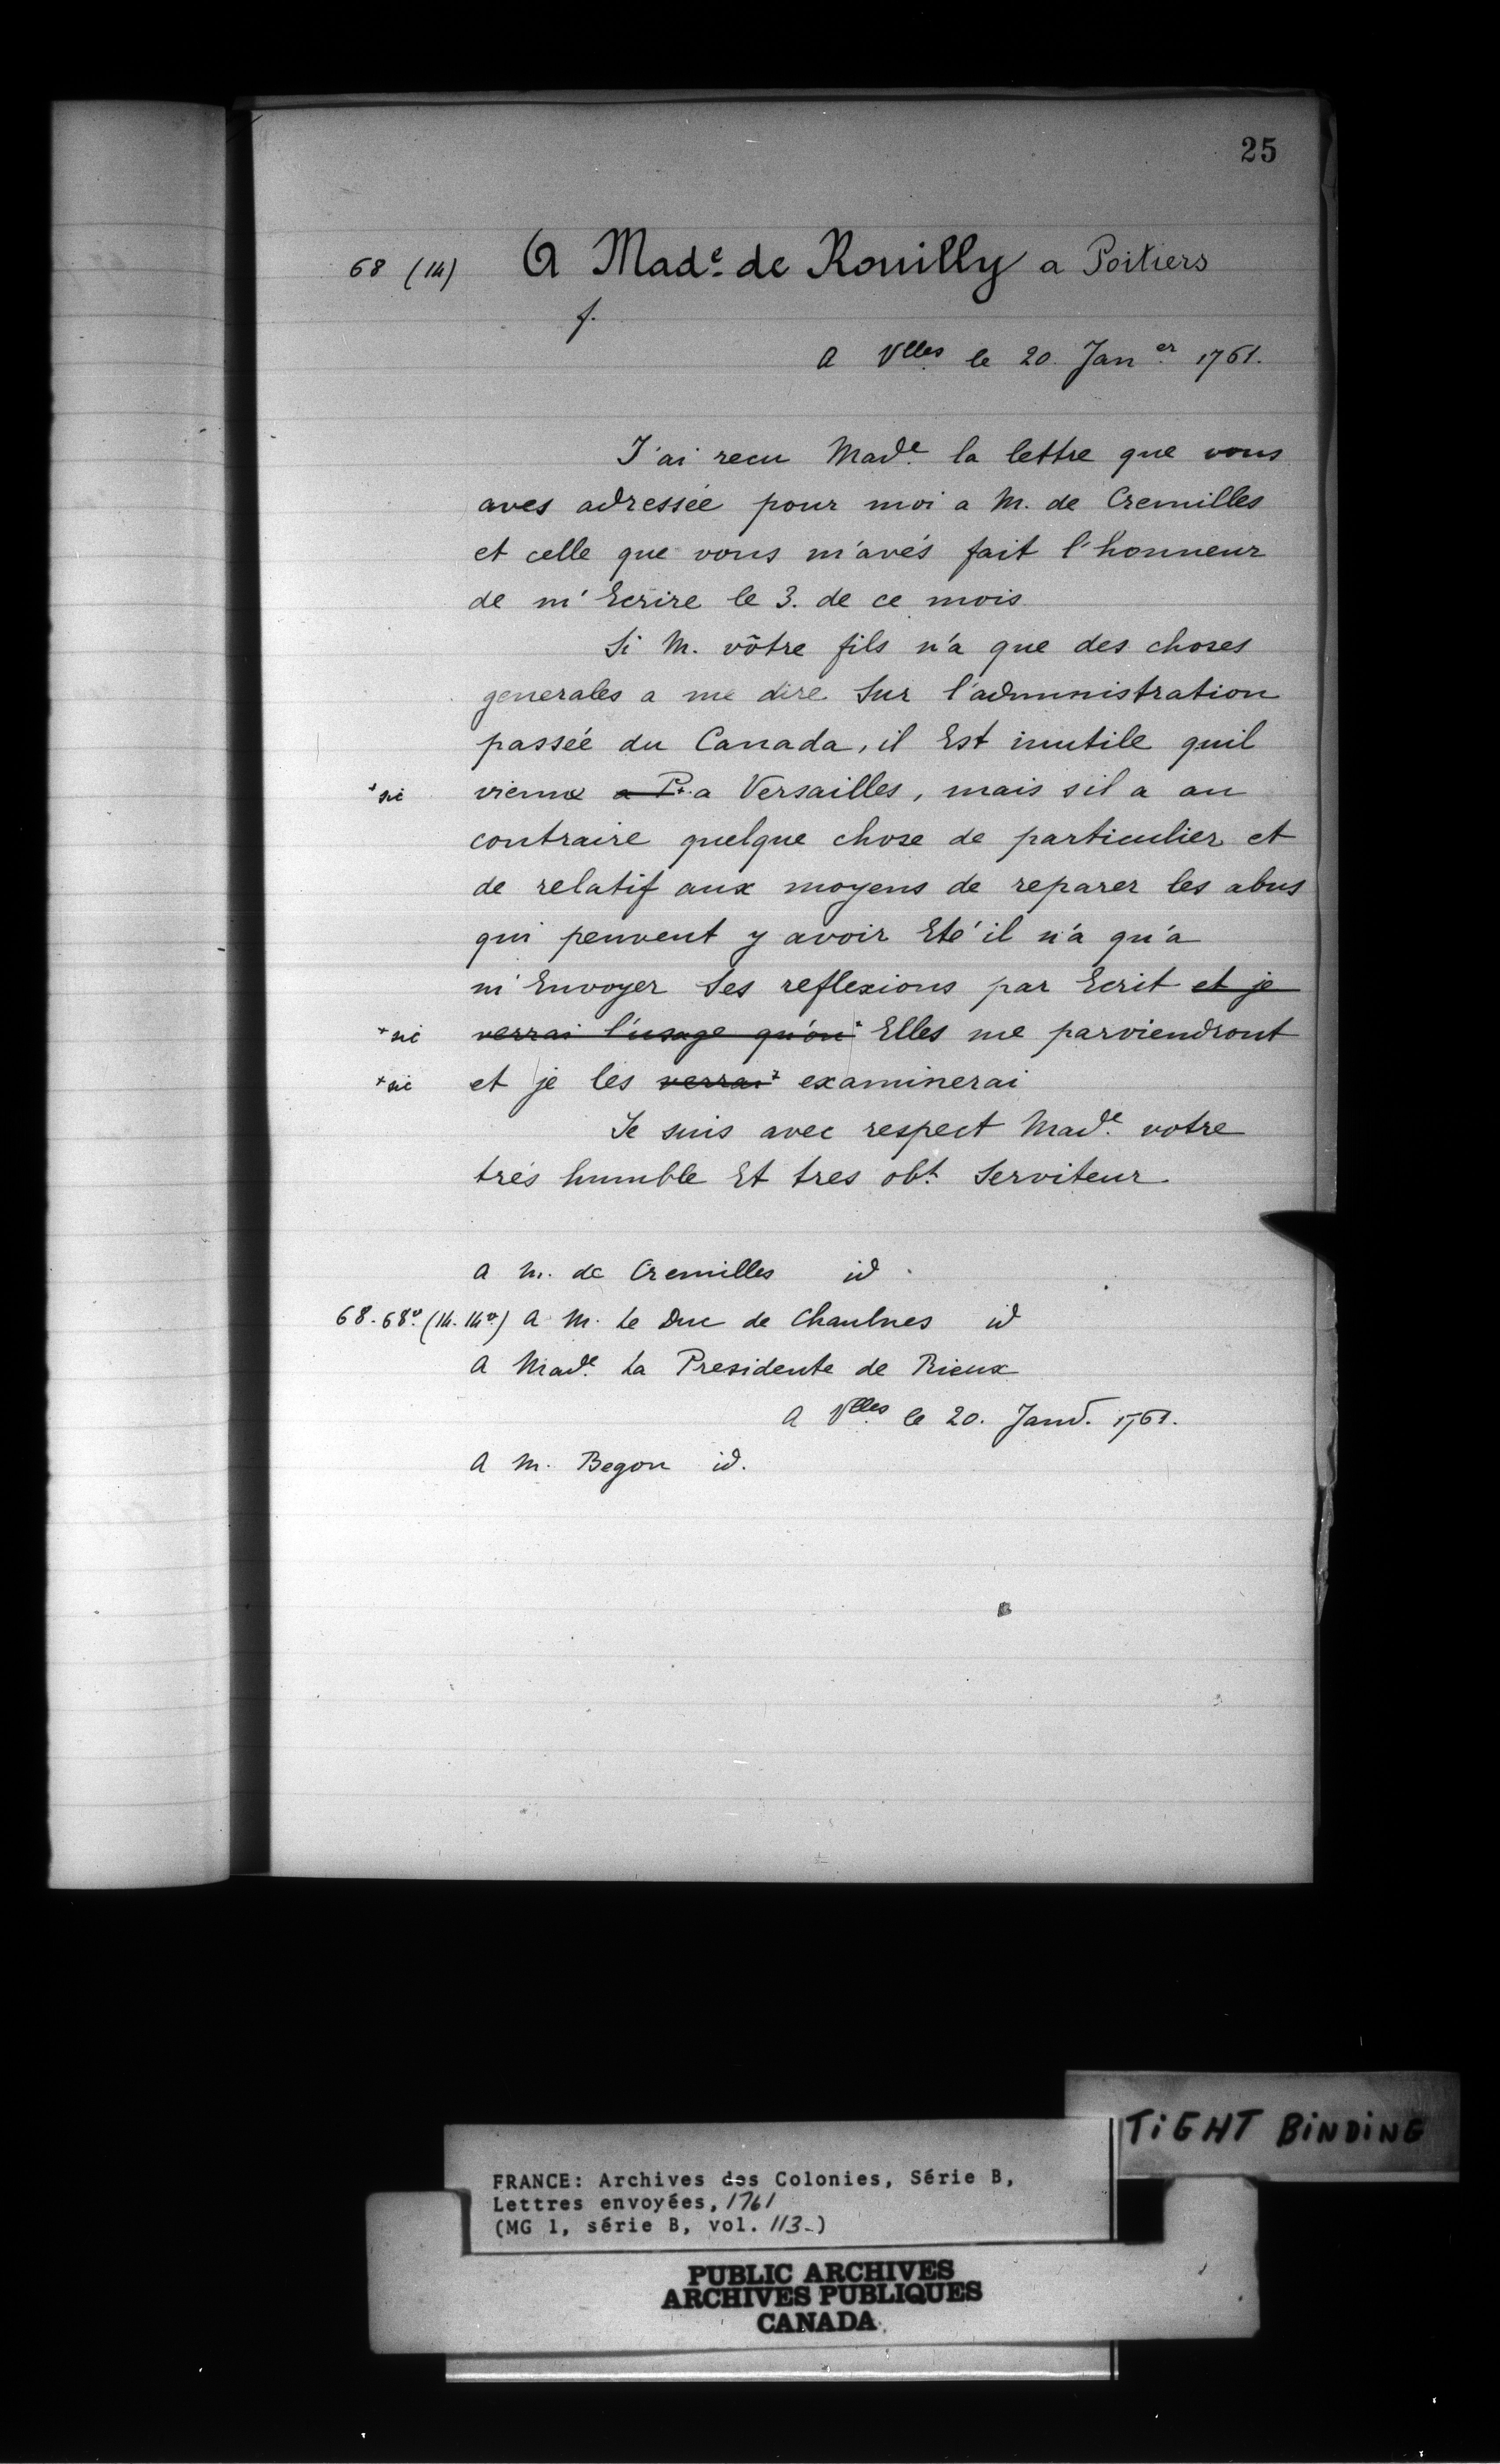 25
68 (14) A Made. de Rouilly a Poitiers
f.
A Vlles le 20. Janer. 1761.
J'ai recu Made. la lettre que vous
aves adressée pour moi a M. de Cremilles
et celle que vous m'avés fait l'honneur
de m'Ecrire le 3. de ce mois
Si M. vôtre fils n'a que des choses
generales a me dire Sur l'administration
passée du Canada, il Est inutile quil
+sic vienne a P+ a Versailles, mais s'il a au
contraire quelque chose de particulier et
de relatif aux moyens de reparer les abus
qui peuvent y avoir Eté il n'a qu'a
m'Envoyer Ses reflexions par Ecrit et je
+sic verrai l'usage qu'on+ Elles me parviendront
+sic et je les verrai+ examinerai
Je suis avec respect Made. votre
trés humble Et tres obt. Serviteur
A M. de Cremilles id.
68-68vo. (14. 14vo.) A M. Le Duc de Chaulnes id
A Made. La Presidente de Rieux
A Vlles le 20. Janv. 1761.
A M. Begon id.
TiGHT BiNDiNG
FRANCE: Archives des Colonies, Série B,
Lettres envoyées, 1761
(MG 1, série B, vol. 113-)
PUBLIC ARCHIVES
ARCHIVES PUBLIQUES
CANADA